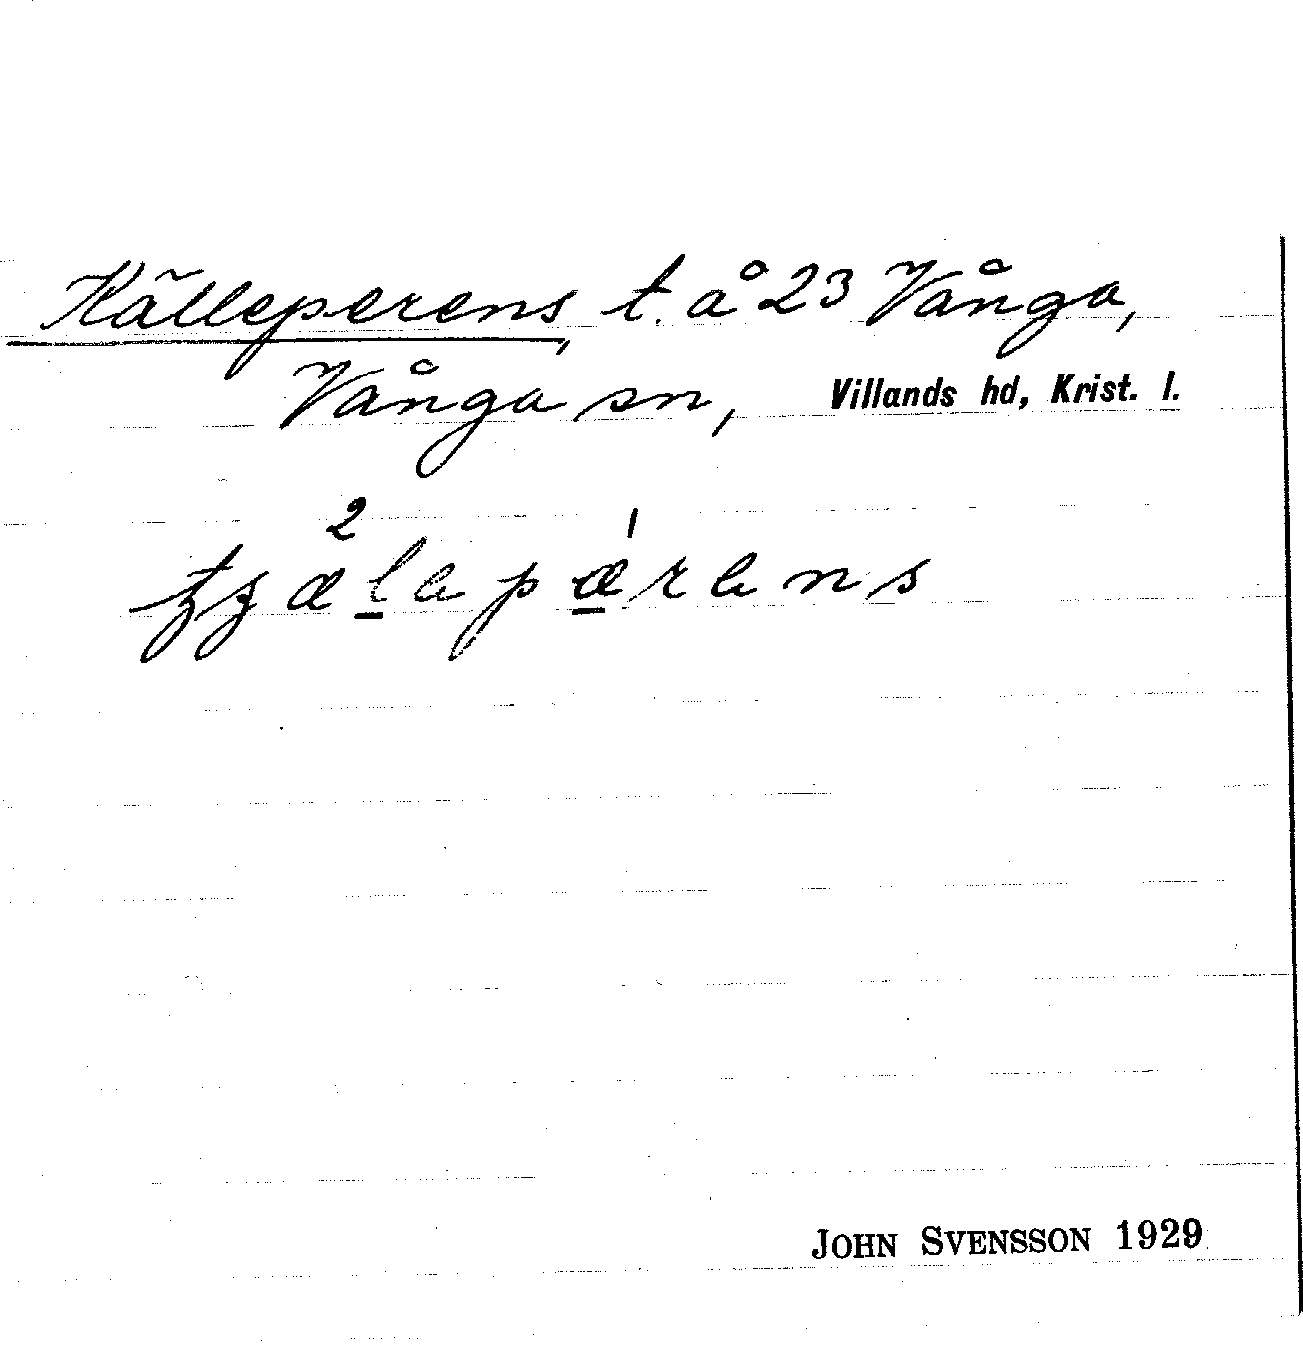 Källeperens, t. å 23 Vånga,
Vånga sn, Villands hd, Krist. l.
2 1
tʒælapærans
JOHN SVENSSON 1929